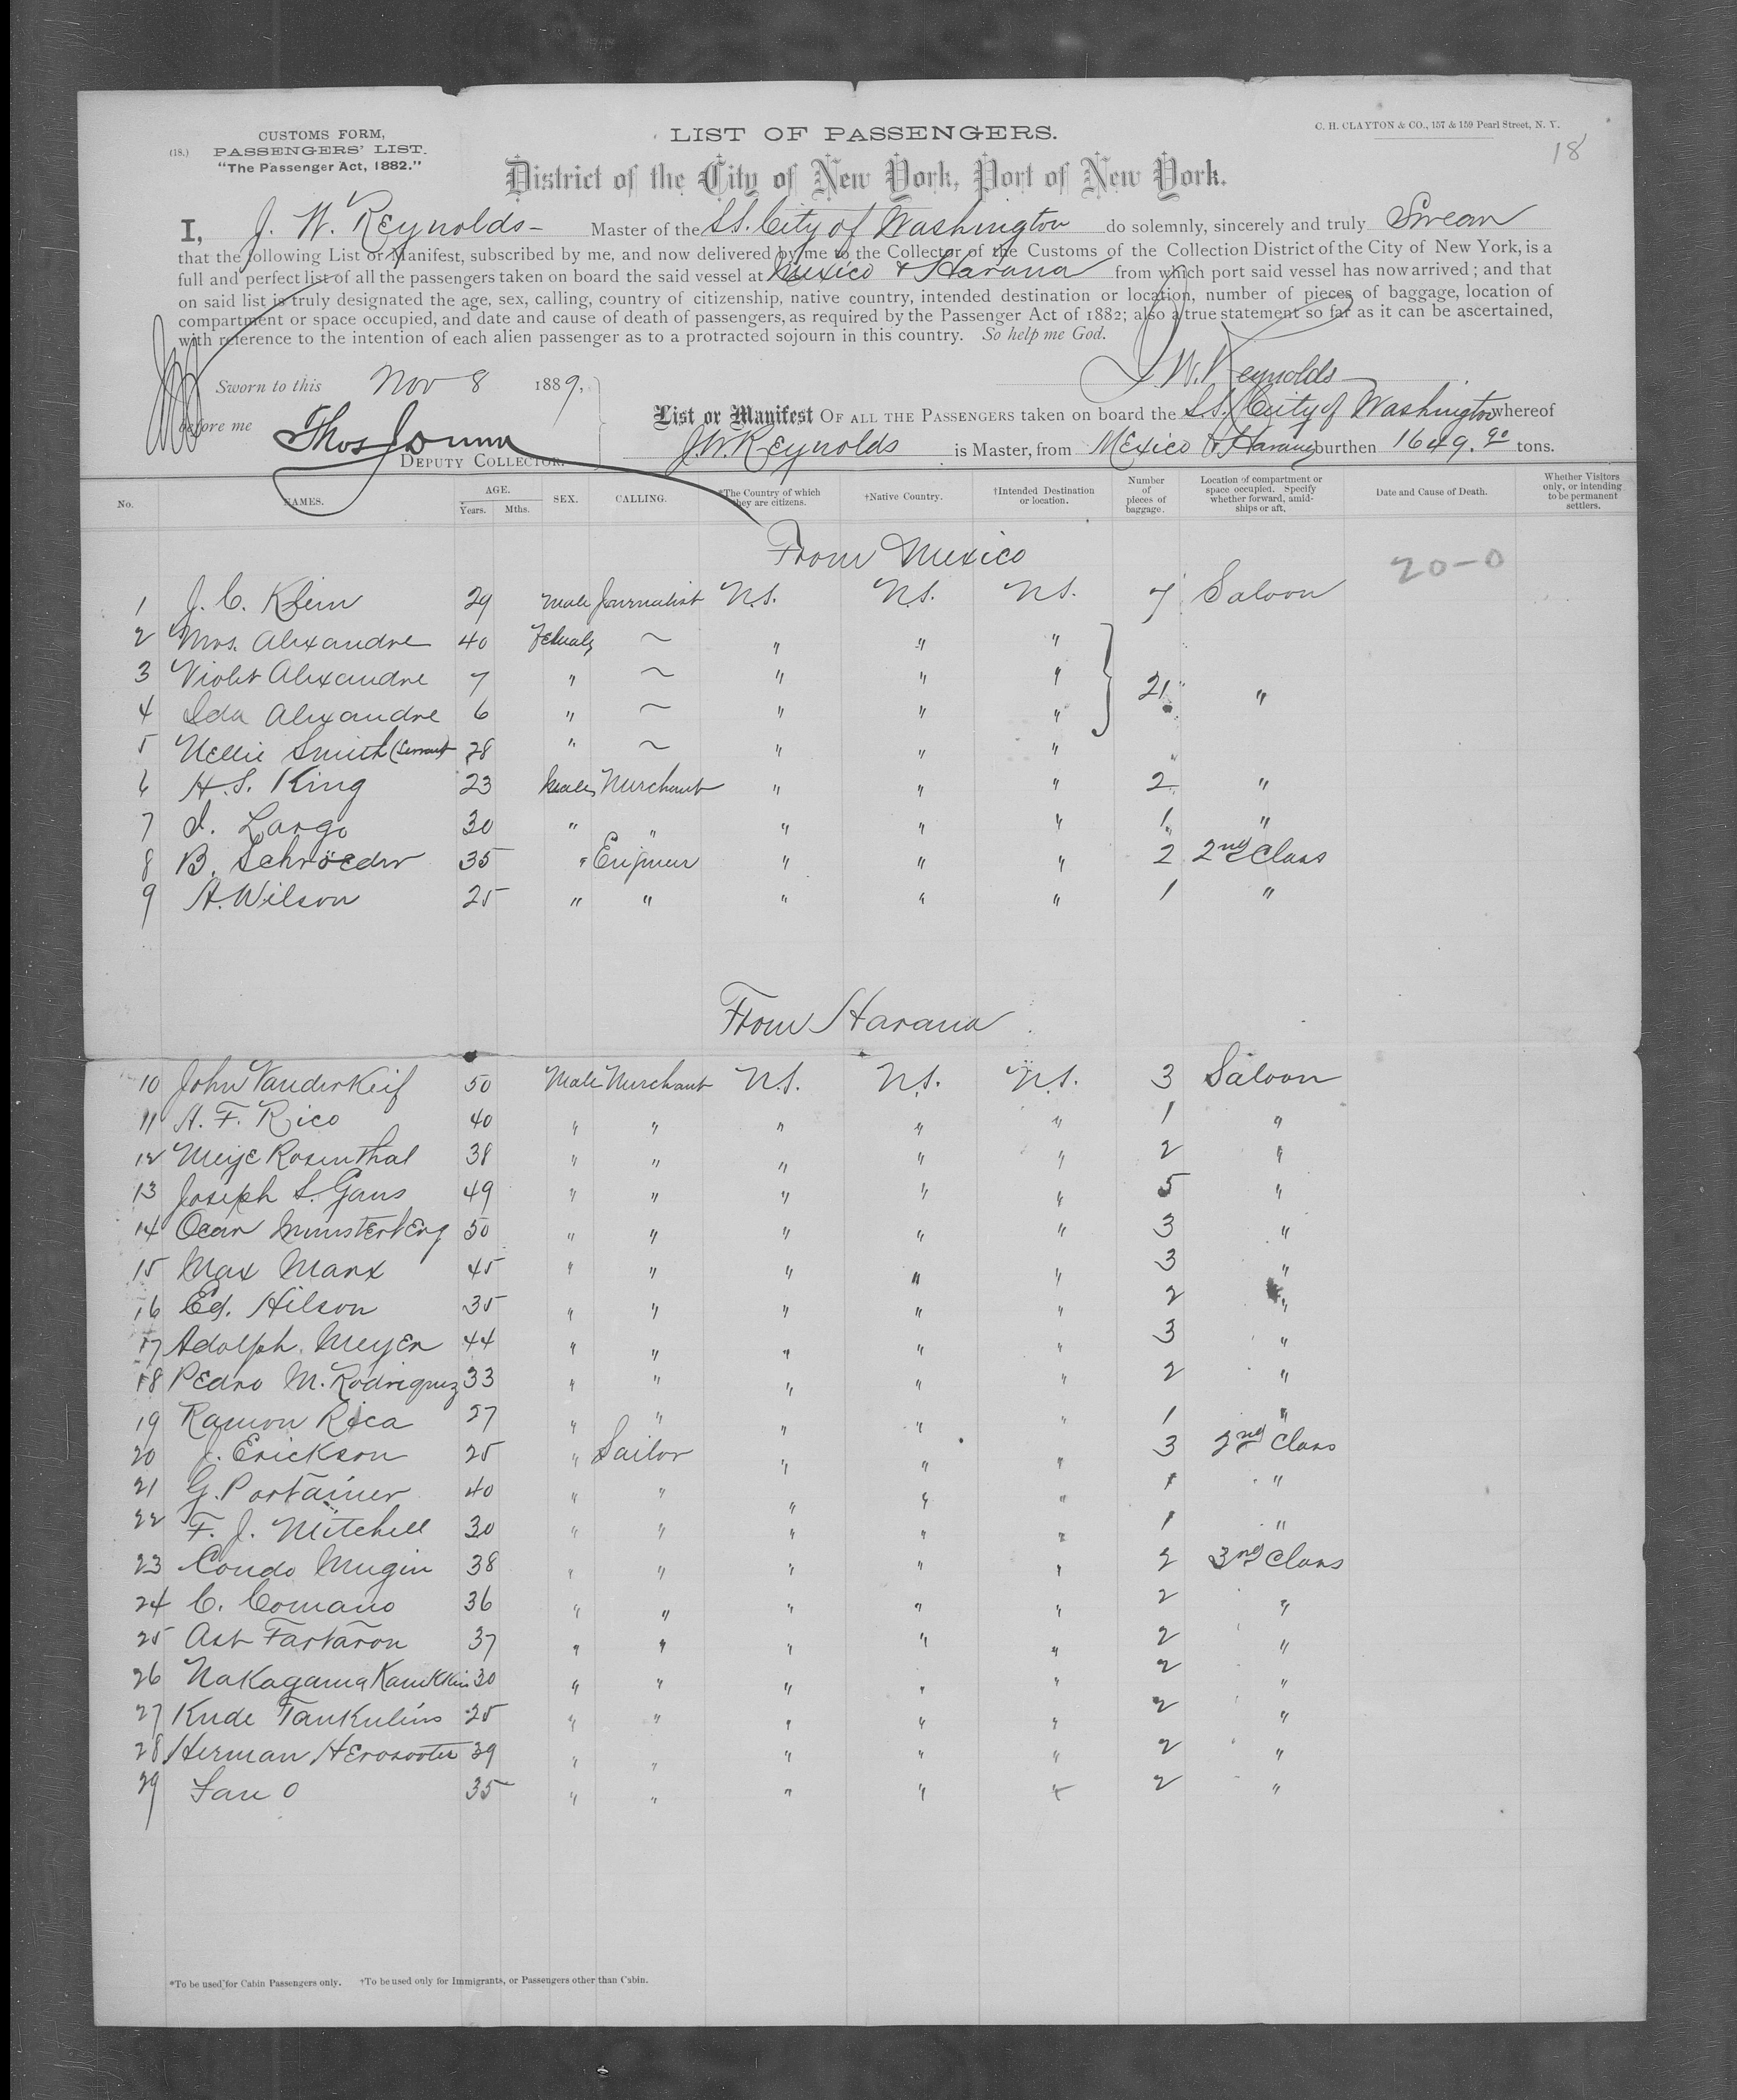 CUSTOMS FORM,
(18.) PASSENGERS' LIST.
"The Passenger Act, 1882."
LIST OF PASSENGERS.
C. H. CLAYTON & CO., 157 & 159 Pearl Street, N. Y.
18
District of the City of New York, Port of New York.
I, J. W. Reynolds - Master of the S.S. City of Washington do solemnly, sincerely and truly Swear
that the following List or Manifest, subscribed by me, and now delivered by me to the Collector of the Customs of the Collection District of the City of New York, is a
full and perfect list of all the passengers taken on board the said vessel at Mexico & Havana from which port said vessel has now arrived; and that
on said list is truly designated the age, sex, calling, country of citizenship, native country, intended destination or location, number of pieces of baggage, location of
compartment or space occupied, and date and cause of death of passengers, as required by the Passenger Act of 1882; also a true statement so far as it can be ascertained,
with reference to the intention of each alien passenger as to a protracted sojourn in this country. So help me God.
J. W. Reynolds
Sworn to this Nov 8 1889,
before me Thos
DEPUTY COLLECTOR.
List or Manifest OF ALL THE PASSENGERS taken on board the S.S. City of Washington whereof
J. W. Reynolds is Master, from Mexico & Havana burthen 1649.90 tons.
No. NAMES. AGE. Years. Mths. SEX. CALLING. *The Country of which they are citizens. †Native Country. †Intended Destination or location. Number of pieces of baggage. Location of compartment or space occupied. Specify whether forward, amidships or aft. Date and Cause of Death. Whether Visitors only, or intending to be permanent settlers.
From Mexico
20-0
1 J. C. Klein 29 Male Journalist U.S. U.S. U.S. 7 Saloon
2 Mrs. Alexandre 40 Female ~ " " "
3 Violet Alexandre 7 " ~ " " " 21 "
4 Ida Alexandre 6 " ~ " " "
5 Nellie Smith (Servant 28 " ~ " " " "
6 H. S. King 23 Male Merchant " " " 2 "
7 I. Largo 30 " " " " " 1 "
8 B. Schröeder 35 " Engineer " " " 2 2nd Class
9 A. Wilson 25 " " " " " 1 "
From Havana
10 John Vanderkeif 50 Male Merchant U.S. U.S. U.S. 3 Saloon
11 A. F. Rico 40 " " " " " 1 "
12 Meije Rosenthal 38 " " " " " 2 "
13 Joseph S. Gans 49 " " " " " 5 "
14 Oscar Munsterberg 50 " " " " " 3 "
15 Max Marx 45 " " " " " 3 "
16 Ed. Hilson 35 " " " " " 2 "
17 Adolph Meyer 44 " " " " " 3 "
18 Pedro M. Rodriguez 33 " " " " " 2 "
19 Ramon Rica 27 " " " " " 1 "
20 J. Erickson 25 " Sailor " " " 3 2nd Class
21 G. Portainer 40 " " " " " 1 "
22 F. J. Mitchell 30 " " " " " 1 "
23 Condo Mugin 38 " " " " " 2 3rd Class
24 C. Comano 36 " " " " " 2 "
25 Ast Fartaron 37 " " " " " 2 "
26 Nakagama 30 " " " " " 2 "
27 Kude Tankulins 25 " " " " " 2 "
28 Herman 39 " " " " " 2 "
29 35 " " " " " 2 "
*To be used for Cabin Passengers only. †To be used only for Immigrants, or Passengers other than Cabin.